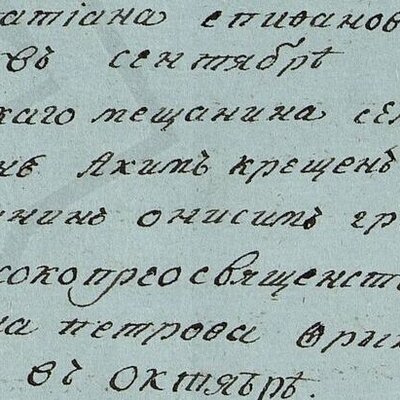 атіана епифанов
въ сентябрѣ
каго мещанина се
нѣ Акимъ крещенъ
нинъ онисимъ гр
сокопреосвященст
на петрова Ѳри
въ октябрѣ.